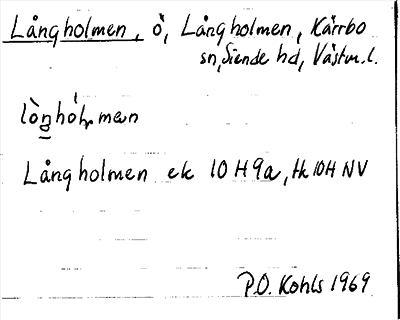 Långholmen, ö, Långholmen, Kärrbo
sn, Siende hd, Västm. l.
lò̀ŋhól̩mæn
Långholmen ek 10 H 9a, tk 10H NV
P.O. Kohls 1969